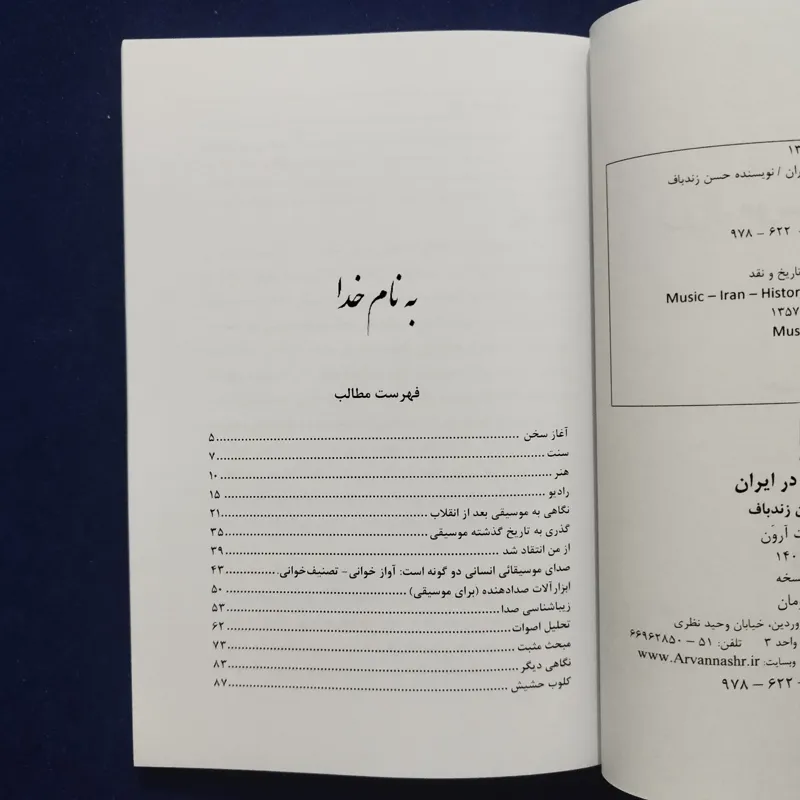 به نام خدا
فهرست مطالب
آغاز سخن ........ ۵
سنت ........ ۷
هنر ........ ۱۰
رادیو ........ ۱۵
نگاهی به موسیقی بعد از انقلاب ........ ۲۱
گذری به تاریخ گذشته موسیقی ........ ۳۵
از من انتقاد شد ........ ۳۹
صدای موسیقائی انسانی دو گونه است: آواز خوانی- تصنیف‌خوانی. ........ ۴۳
ابزارآلات صدادهنده (برای موسیقی) ........ ۵۰
زیباشناسی صدا ........ ۵۳
تحلیل اصوات ........ ۶۲
مبحث مثبت ........ ۷۳
نگاهی دیگر ........ ۸۳
کلوب حشیش ........ ۸۷
/ نویسنده حسن زندباف
۹۷۸ – ۶۲۲ -
تاریخ و نقد
Music – Iran – Histor
۱۳۵۷
Mus
در ایران
زندباف
آروَن
۱۴۰
وردین، خیابان وحید نظری
واحد ۳ تلفن: ۵۱ – ۶۶۹۶۲۸۵۰
وبسایت: www.Arvannashr.ir
۹۷۸ – ۶۲۲ -